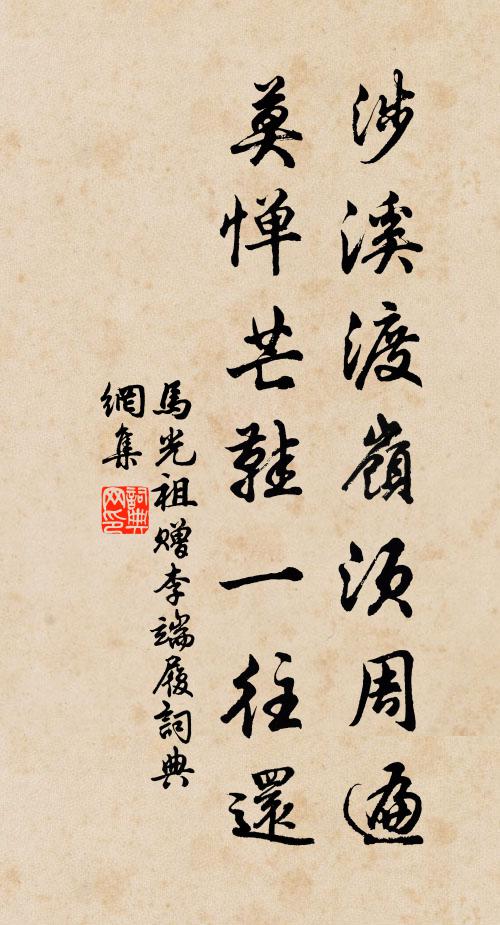 涉溪渡嶺須周遍
莫惮芒鞋一往還
馬光祖赠李端履詞典
網集
詞典
网印